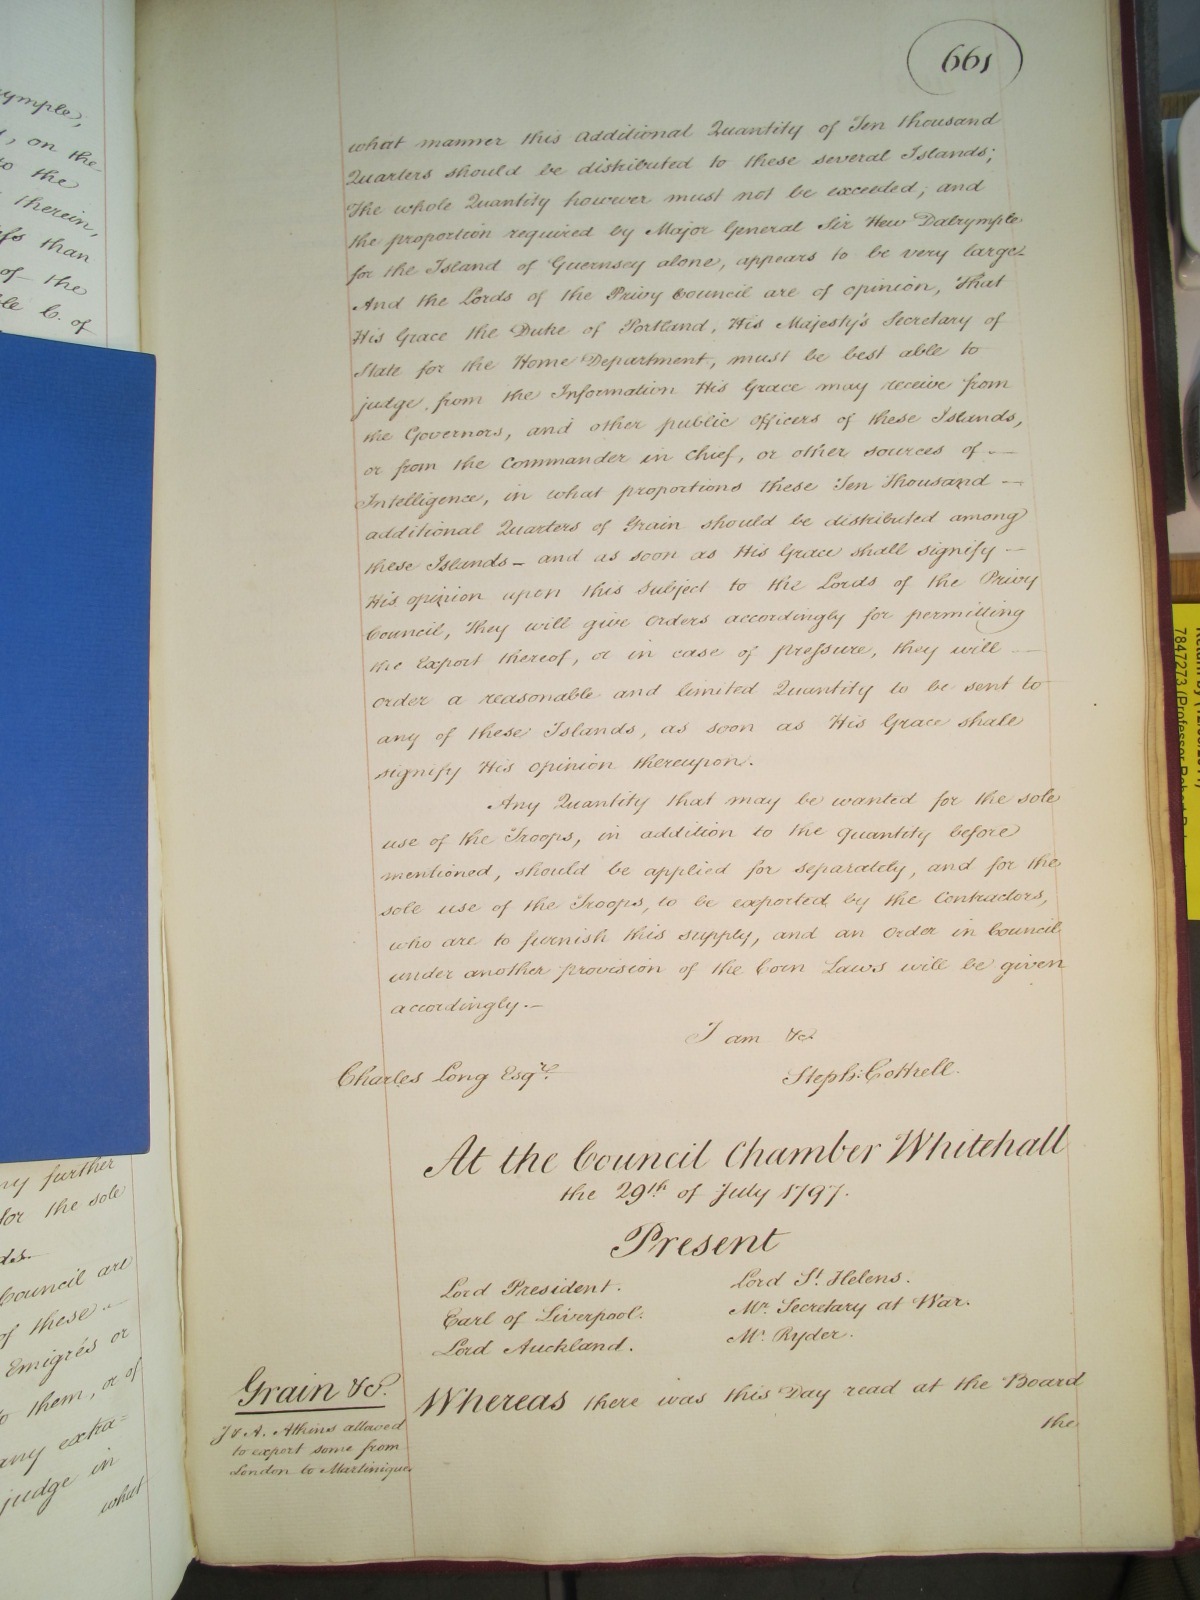 661
what manner this additional Quantity of Ten thousand
Quarters should be distributed to these several Islands;
The whole Quantity however must not be exceeded; and
the proportion required by Major General Sir Hew Dalrymple
for the Island of Guernsey alone, appears to be very large
And the Lords of the Privy Council are of opinion, That
His Grace the Duke of Portland, His Majesty's Secretary of
State for the Home Department, must be best able to
judge, from the Information His Grace may receive from
the Governors, and other public officers of these Islands,
or from the Commander in Chief, or other sources of —
Intelligence, in what proportions these Ten Thousand —
additional Quarters of Grain should be distributed among
these Islands – and as soon as His Grace shall signify —
His opinion upon this Subject to the Lords of the Privy
Council, They will give orders accordingly for permitting
the Export thereof, or in case of pressure, they will —
order a reasonable and limited Quantity to be sent to
any of these Islands, as soon as His Grace shall
signify His opinion thereupon.
Any Quantity that may be wanted for the sole
use of the Troops, in addition to the quantity before
mentioned, should be applied for separately, and for the
sole use of the Troops, to be exported by the Contractors,
who are to furnish this supply, and an Order in Council
under another provision of the Corn Laws will be given
accordingly.—
I am &c
Charles Long Esqre.
Steph: Cottrell.
At the Council Chamber Whitehall
the 29th of July 1797.
Present
Lord President. Lord St. Helens.
Earl of Liverpool. Mr. Secretary at War.
Lord Auckland. Mr. Ryder.
Grain &c.
J & A. Atkins allowed
to export some from
London to Martinique
Whereas there was this Day read at the Board
the
ymple,
, on the
to the
therein,
ss than
of the
ble C. of
ny further
for the sole
ds.
Council are
of these
Emigrés or
o them, or of
any extra=
judge in
what
7847273 (Professor